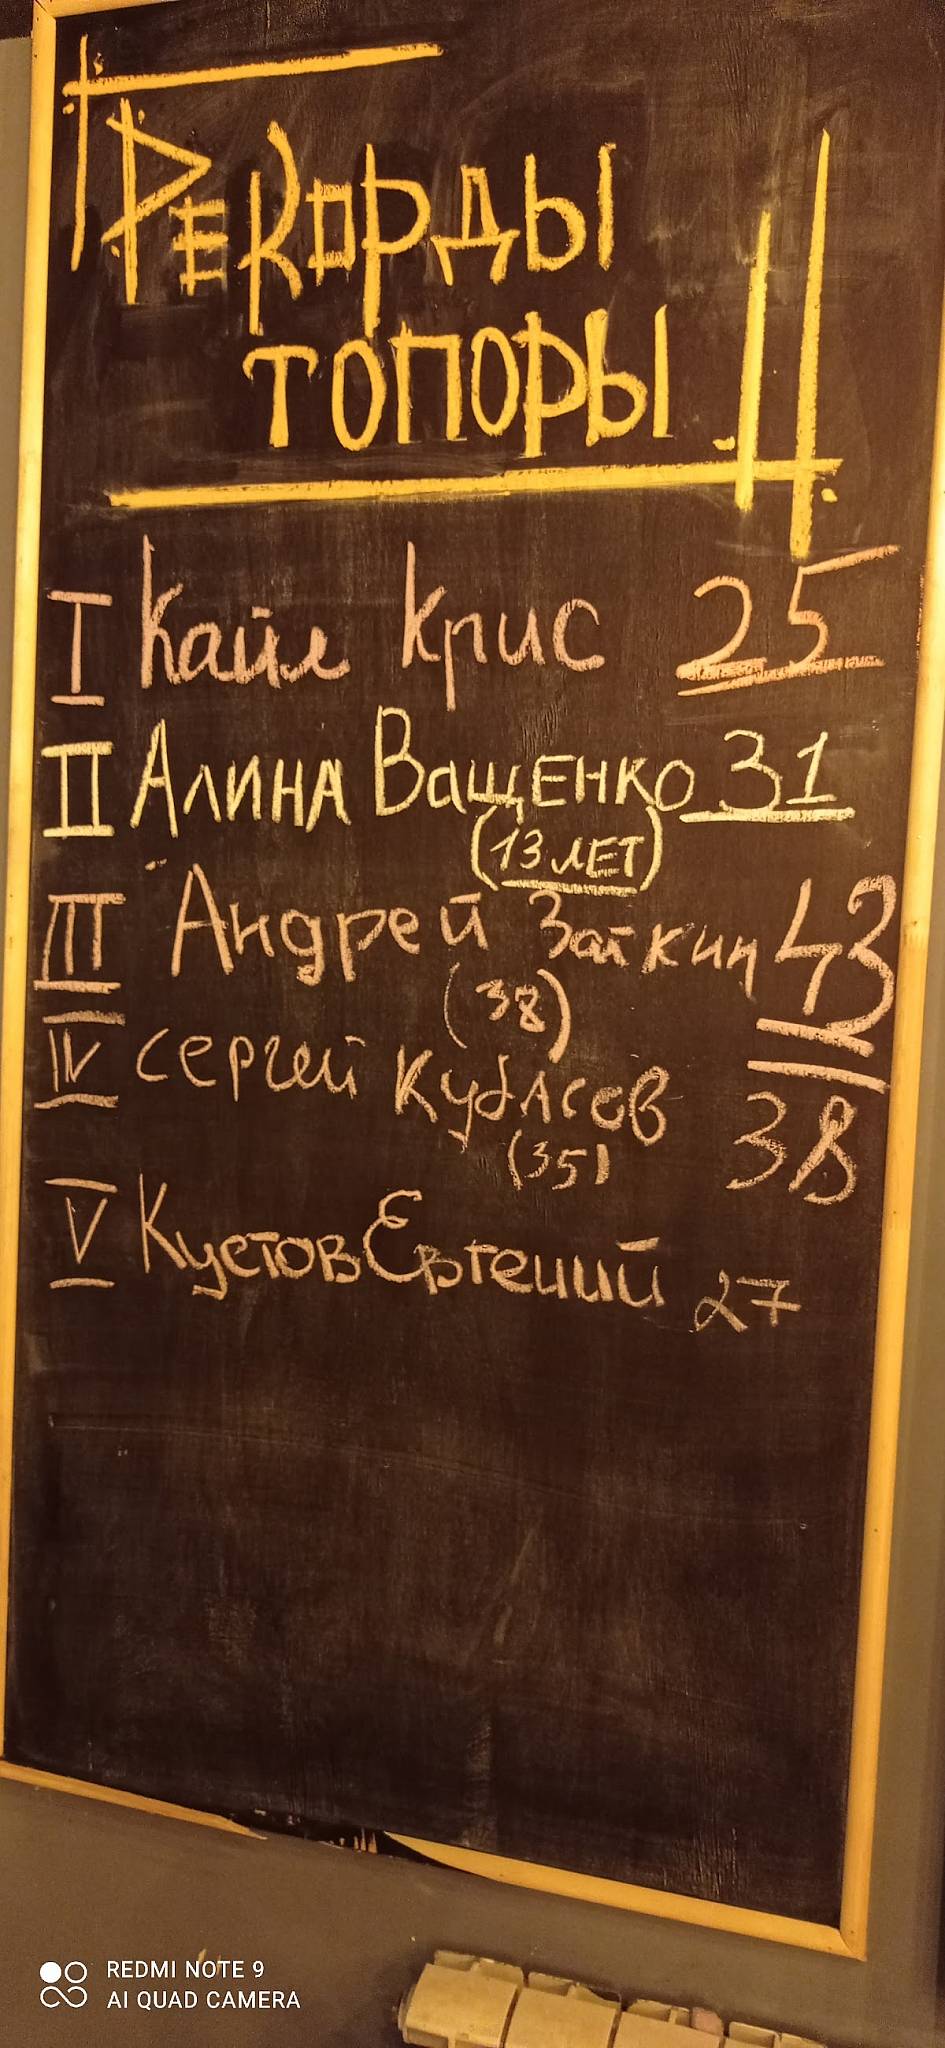 РЕКОРДЫ
ТОПОРЫ
I Кайл Крис 25
II АЛИНА ВАЩЕНКО 31
(13 ЛЕТ)
III Андрей Зайкин 43
(38)
IV Сергей Кубасов 38
(35)
V Кустов Евгений 27
REDMI NOTE 9
AI QUAD CAMERA